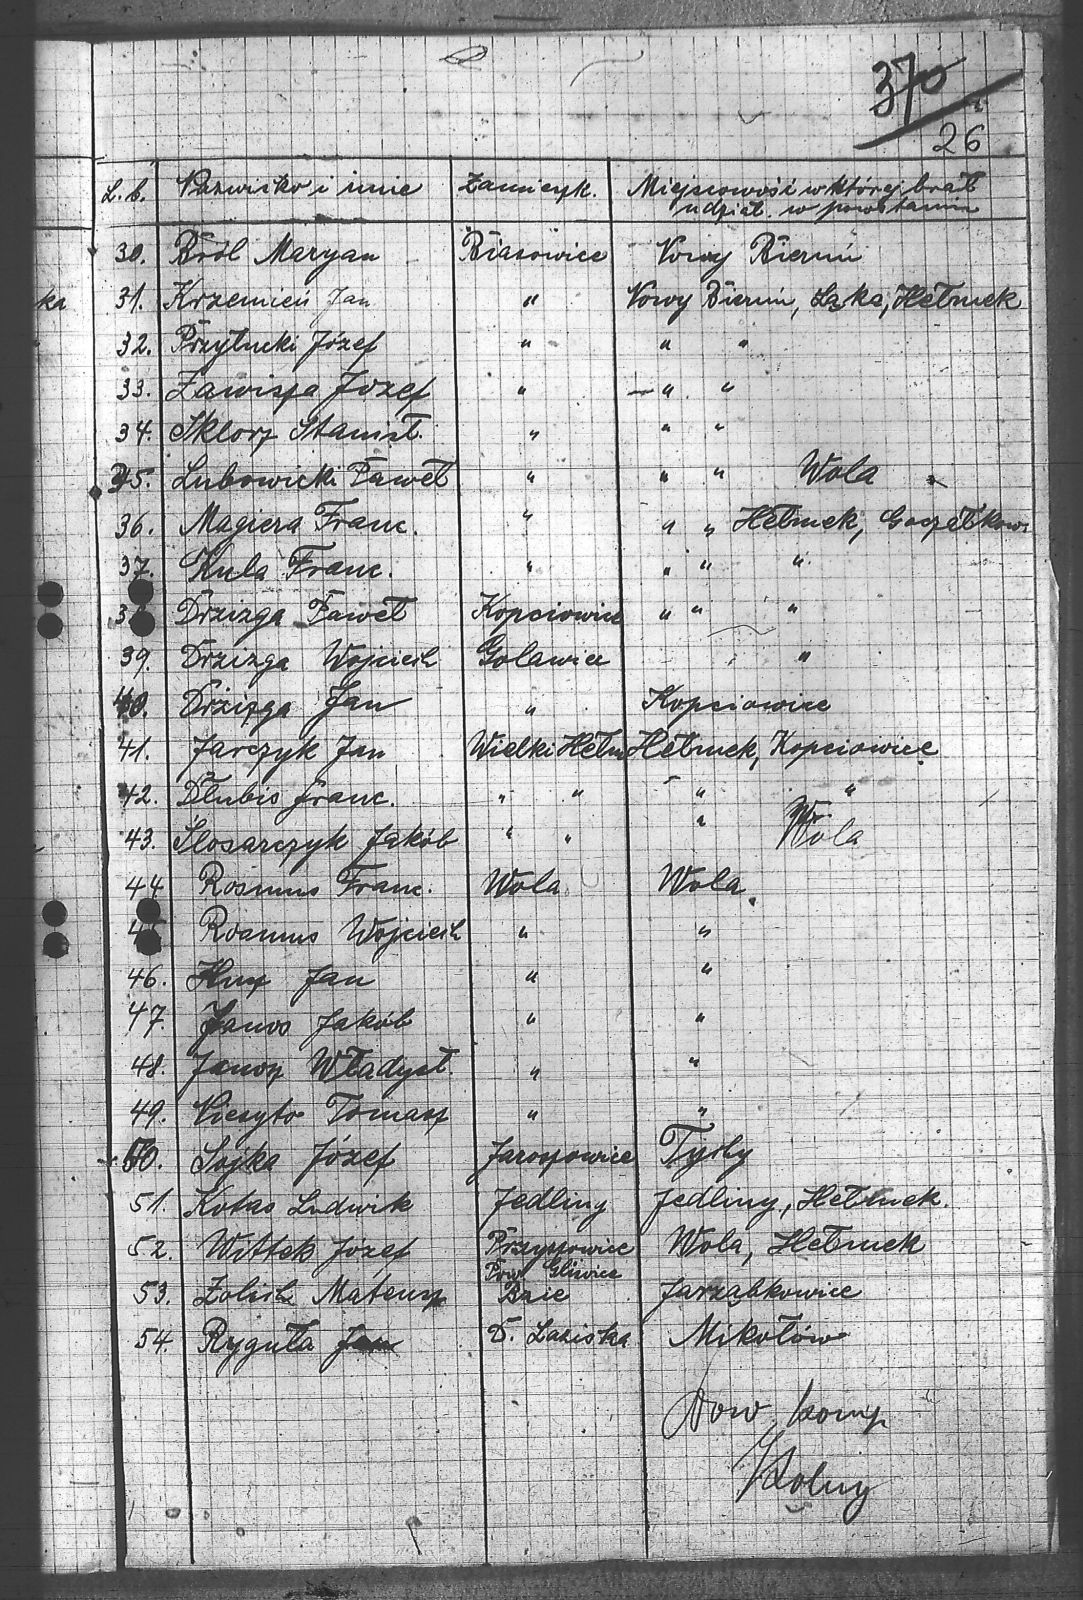 370
26
L.b. Nazwisko i imie Zamieszk. Miejscowość w której brał
udział w powstaniu
30. Król Maryan Bijasowice Nowy Bieruń
31. Krzemień Jan " Nowy Bieruń, Łąka, Hełmek
32. Przytucki Józef " " "
33. Zawisza Józef " — " "
34. Sklorz Stanisł. " " "
35. Lubowicki Paweł " " " Wola
36. Magiera Franc. " " " Hełmek, Goczałkow.
37. Kula Franc. " " " "
38 Drzizga Paweł Kopciowice " " "
39. Drzizga Wojciech Golawice "
40. Drzizga Jan " Kopciowice
41. Jarczyk Jan Wielki Hełm Hełmek, Kopciowice
42. Dłubis Franc. " " " "
43. Ślosarczyk Jakób " " " Wola
44 Rosmus Franc. Wola Wola
45 Rosmus Wojciech " "
46. Jan " "
47. Janos Jakób " "
48. Janosz Władysł. " "
49. Niesyto Tomasz " "
50. Sojka Józef Jaroszowice Tychy
51. Kotas Ludwik Jedliny Jedliny, Hełmek.
52. Wittek Józef Przyszowice Wola, Hełmek
Pow Gliwice
53. Zolich Mateusz Bzie Jarząbkowice
54. Ryguła Jan D. Łaziska Mikołów
Dow. komp.
Wolny